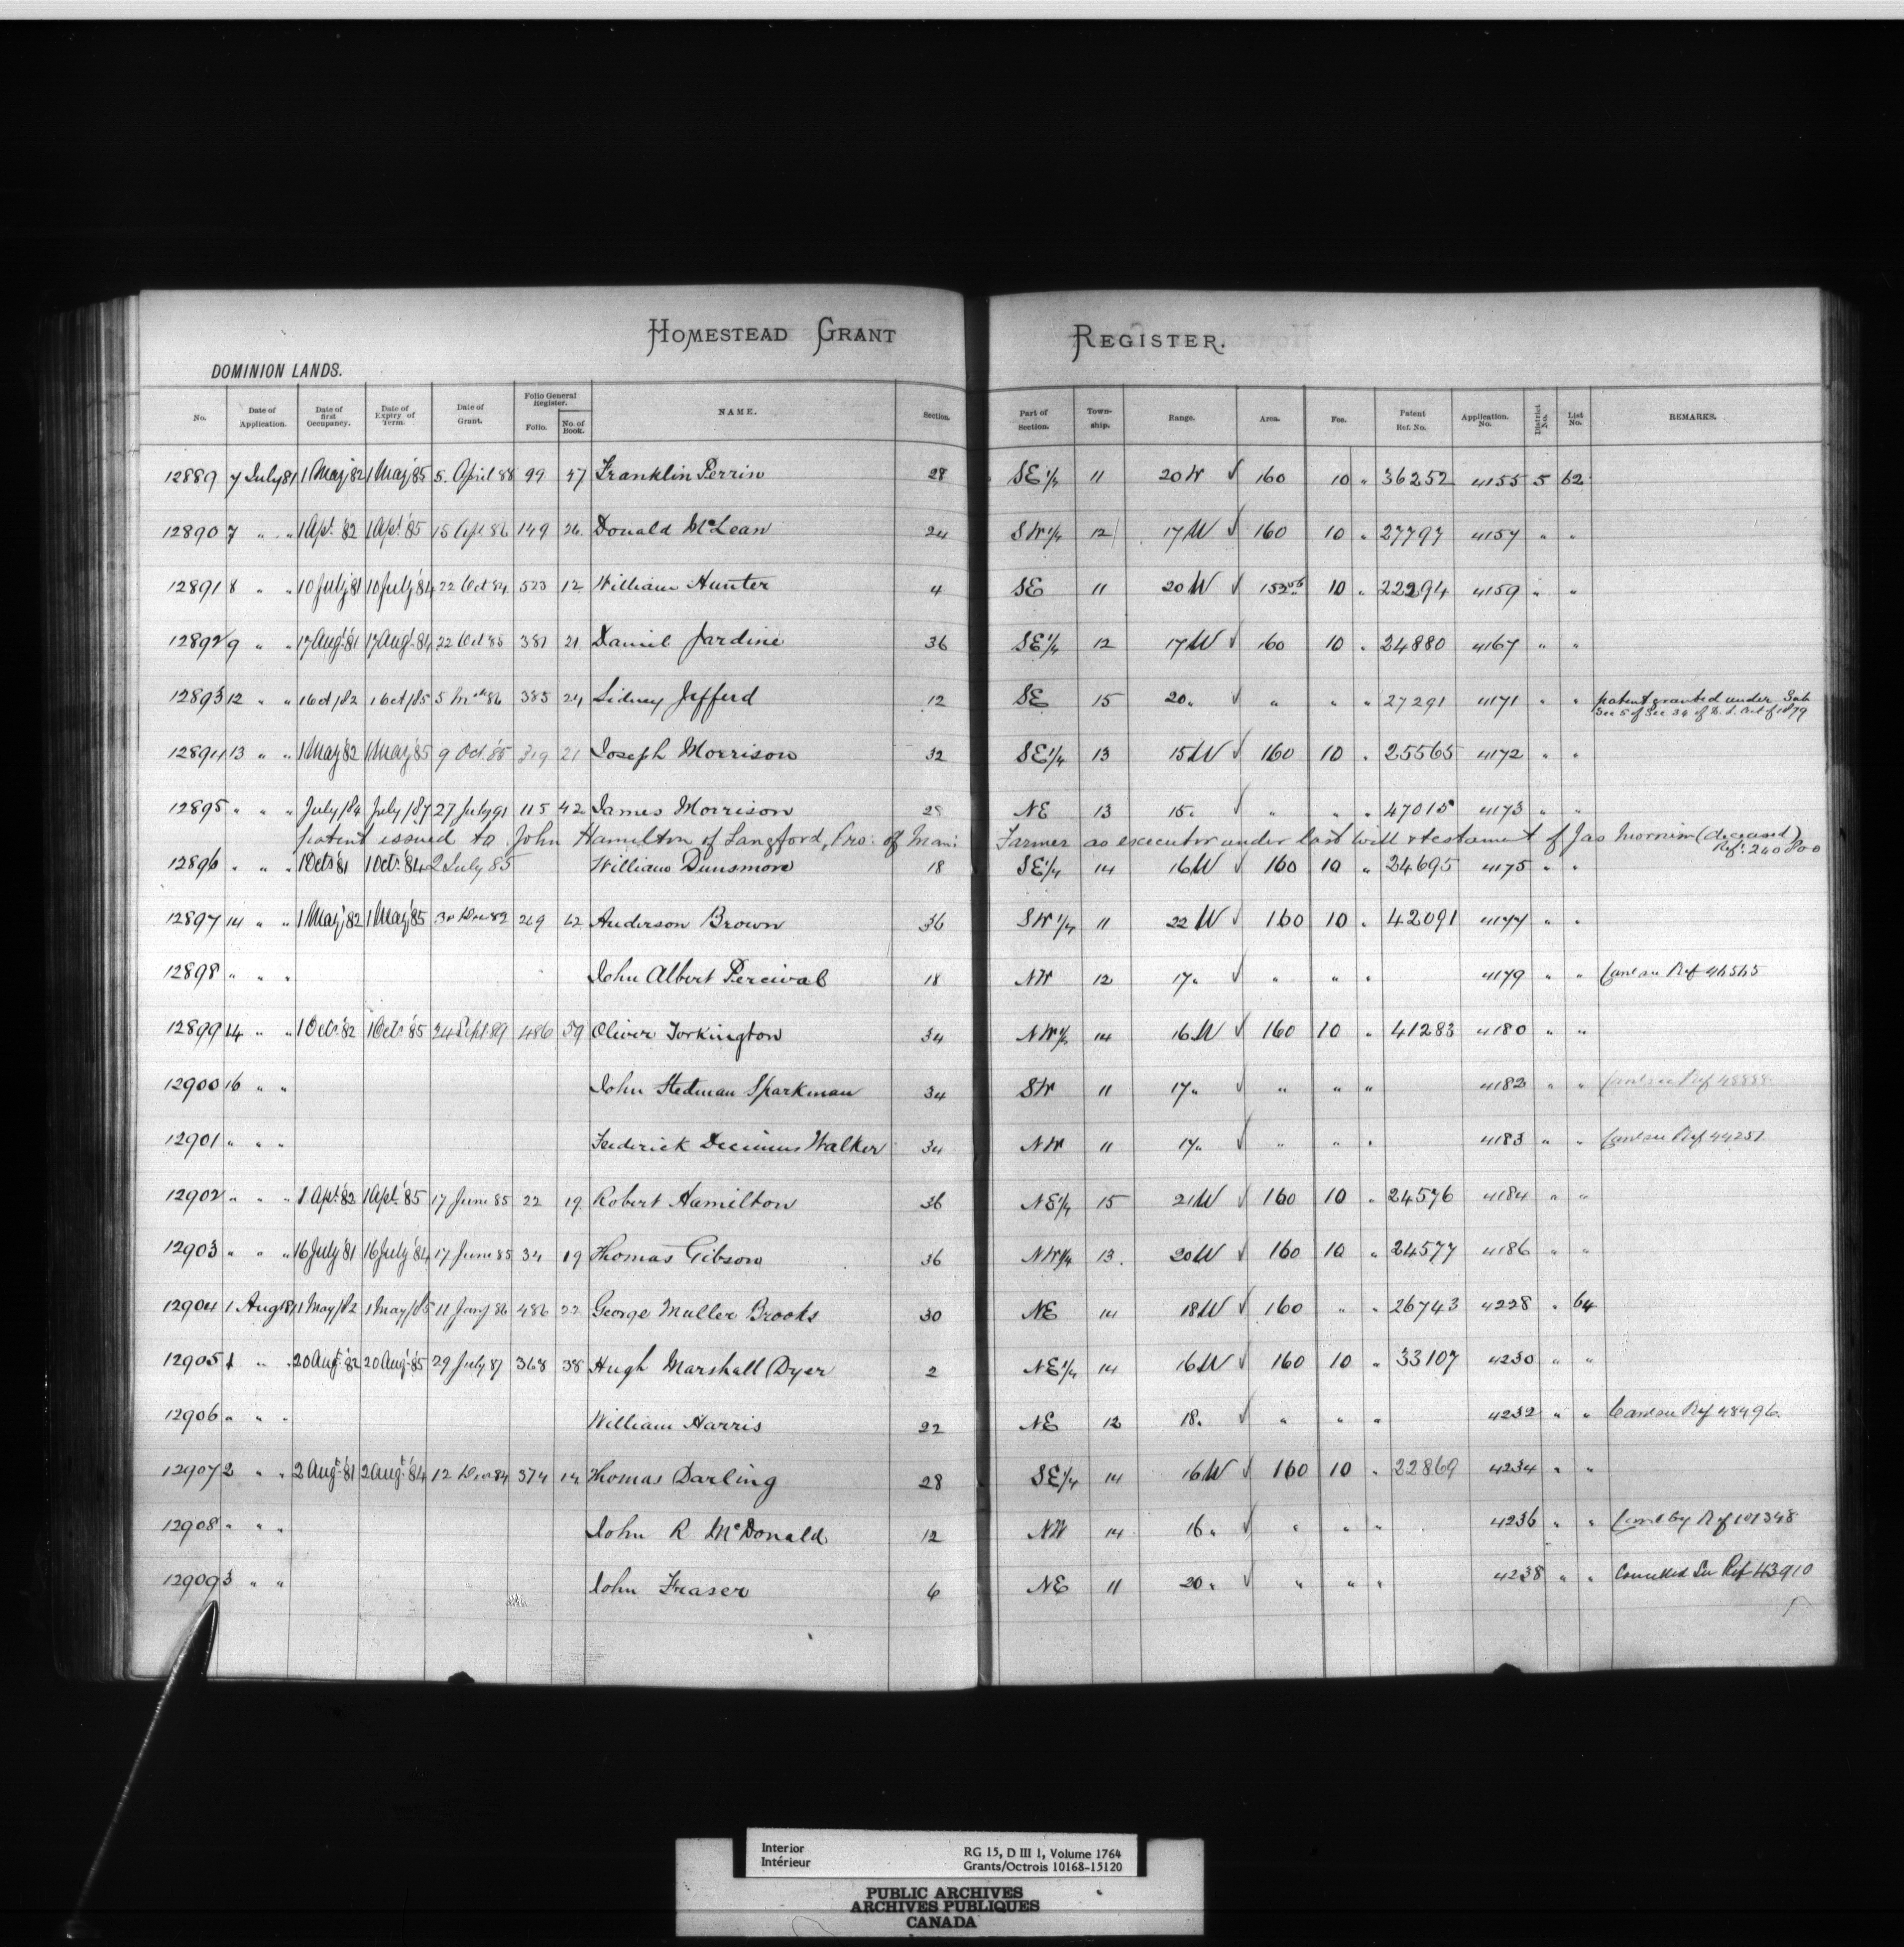 HOMESTEAD GRANT REGISTER.
DOMINION LANDS.
No. Date of Application. Date of first Occupancy. Date of Expiry of Term. Date of Grant. Folio General Register. Folio. No. of Book. NAME. Section. Part of Section. Town-ship. Range. Area. Fee. Patent Ref. No. Application. No. District No. List No. REMARKS.
12889 7 July 81 1 May '82 1 May '85 5. April 88 99 47 Franklin Perrin 28 SE 1/4 11 20 W √ 160 10 " 36252 4155 5 62
12890 7 " " 1 Apl. '82 1 Apl. '85 15 Apl 86 149 26 Donald McLean 24 SW 1/4 12 17 W √ 160 10 " 27797 4157 " "
12891 8 " " 10 July '81 10 July '84 22 Oct 84 523 12 William Hunter 4 SE 11 20 W √ 10 " 22294 4159 " "
12892 9 " " 17 Augt '81 17 Augt '84 22 Oct 85 381 21 Daniel Jardine 36 SE 1/4 12 17 W √ 160 10 " 24880 4167 " "
12893 12 " " 1 Oct /82 1 Oct /85 5 86 385 24 Sidney Jefferd 12 SE 15 20 " √ " " " 27291 4171 " " patent granted under Sub
Sec 5 of Sec 34 of D. L. Act of 1879
12894 13 " " 1 May '82 1 May '85 9 Oct. '85 319 21 Joseph Morrison 32 SE 1/4 13 15 W √ 160 10 " 25565 4172 " "
12895 " " " July /84 July /87 27 July 91 115 42 James Morrison 28 NE 13 15 " √ " " " 47015 4173 " "
patent issued to John Hamilton of Langford, Pro: of Man: Farmer as executor under last will & testament of Jas Morrison (deceased)
Ref: 240800
12896 " " " 1 Octr '81 1 Octr '84 2 July 85 William Dunsmore 18 SE 1/4 14 16 W √ 160 10 " 24695 4175 " "
12897 14 " " 1 May '82 1 May '85 269 Anderson Brown 36 SW 1/4 11 22 W √ 160 10 " 42091 4177 " "
12898 " " " John Albert Percival 18 NW 12 17 " √ " " " 4179 " " Ref 46565
12899 14 " " 1 Octr '82 1 Octr '85 24 Sept 89 486 39 Oliver Torkington 34 NW 1/4 14 16 W √ 160 10 " 41283 4180 " "
12900 16 " " John Stedman Sparkman 34 SW 11 17 " √ " " " 4182 " " Ref 48888
12901 " " " Frederick Decimus Walker 34 NW 11 17 " √ " " " 4183 " " Ref 44251
12902 " " " 1 Apl. '82 1 Apl. '85 17 June 85 22 19 Robert Hamilton 36 NE 1/4 15 21 W √ 160 10 " 24576 4184 " "
12903 " " " 16 July '81 16 July '84 17 June 85 34 19 Thomas Gibson 36 NW 1/4 13. 20 W √ 160 10 " 24577 4186 " "
12904 1 Aug 81 1 May /82 1 May /85 11 Jany 86 486 22 George Muller Brooks 30 NE 14 18 W √ 160 " " 26743 4228 " 64
12905 1 " " 20 Augt '82 20 Augt '85 29 July 87 368 38 Hugh Marshall Dyer 2 NE 1/4 14 16 W √ 160 10 " 33107 4230 " "
12906 " " " William Harris 22 NE 12 18 " √ " " " 4232 " " Ref 48496.
12907 2 " " 2 Augt '81 2 Augt '84 12 Dec 84 374 14 Thomas Darling 28 SE 1/4 14 16 W √ 160 10 " 22869 4234 " "
12908 " " " John R McDonald 12 NW 14 16 " √ " " " 4236 " " by Ref 101348
12909 3 " " John Fraser 6 NE 11 20 " √ " " " 4238 " " Cancelled See Ref 43910
Interior RG 15, D III 1, Volume 1764
Intérieur Grants/Octrois 10168-15120
PUBLIC ARCHIVES
ARCHIVES PUBLIQUES
CANADA